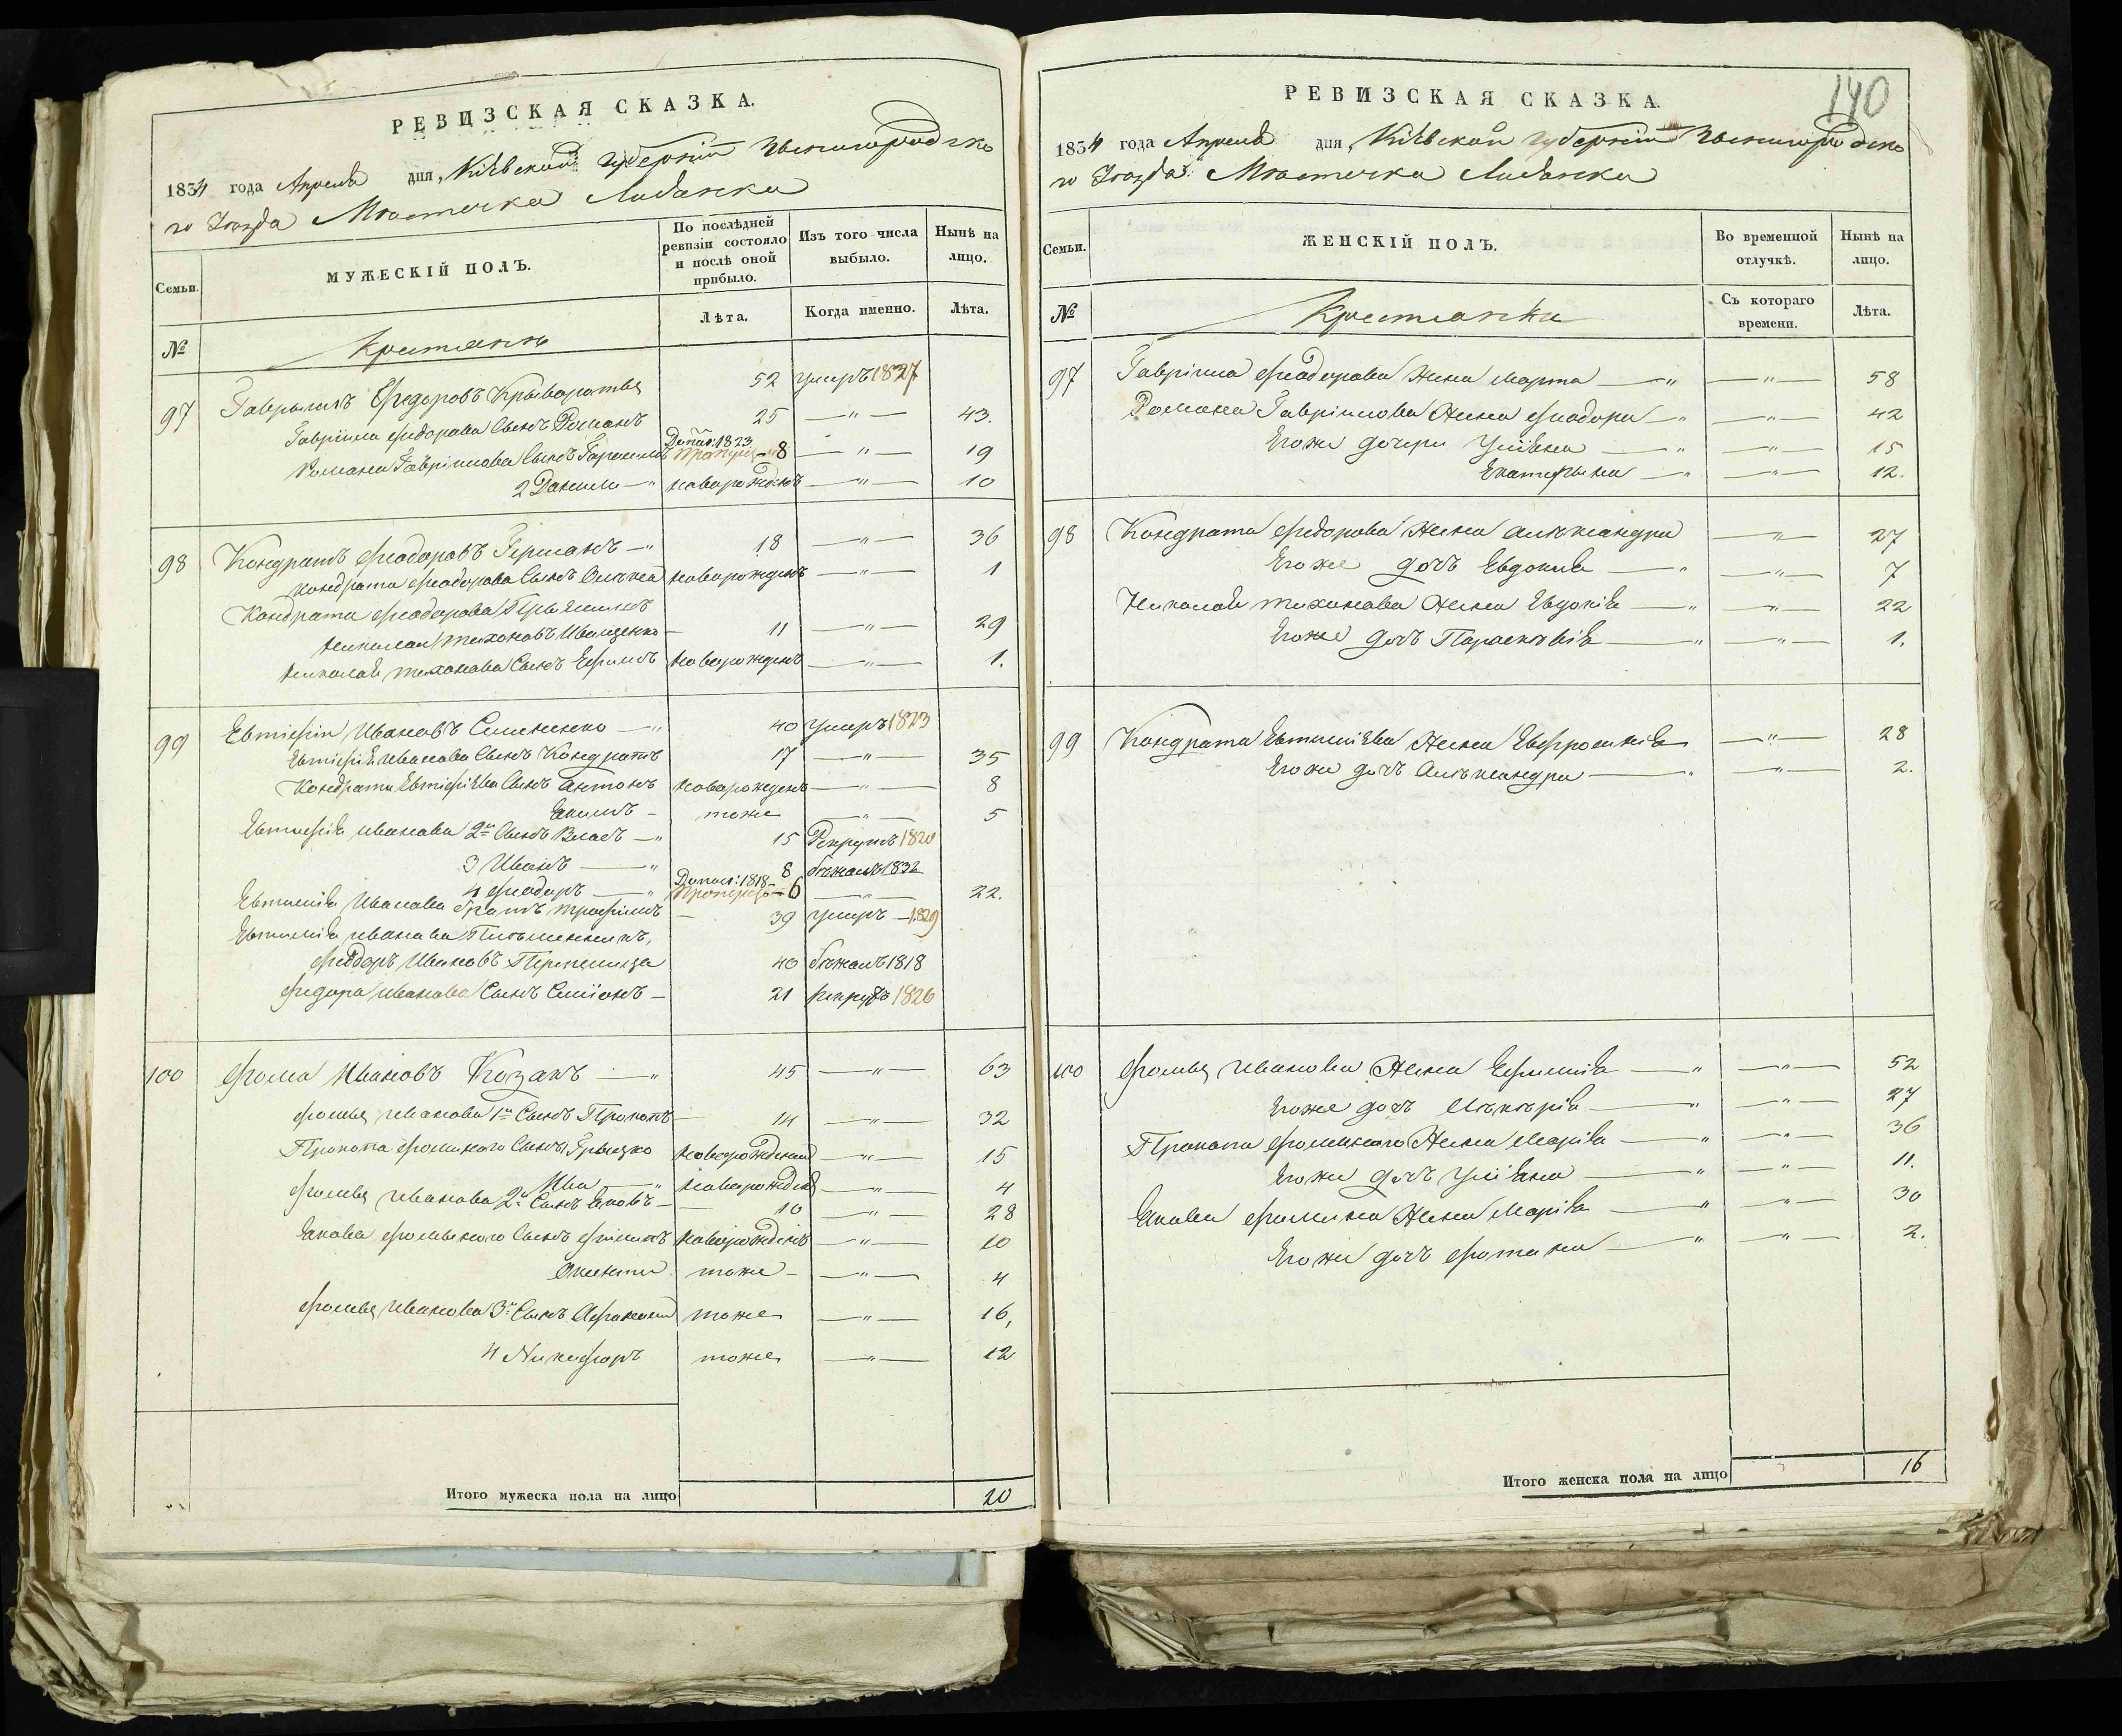 РЕВИЗСКАЯ СКАЗКА.
1834 года Апреля дня, Кіѣвской губерніи Звенигородско
го Уѣзда Мѣстечка Лисянки
Семьи.
МУЖЕСКІЙ ПОЛЪ.
По послѣдней ревизіи состояло и послѣ оной прибыло.
Изъ того числа выбыло.
Нынѣ на лицо.
№
Крестьянъ
Лѣта.
Когда именно.
Лѣта.
97 Гаврыилъ Федоровъ 52 умеръ 1827
Гавріила Федорова Сынъ Романъ 25 — " — 43.
Романа Гавріилова Сынъ Допол: 1823 8 — " — 19
2 Данило — " новорожденъ — " — 10
98 Кондратъ Феодоровъ Германъ — " 18 — " — 36
Кондрата Феодорова Сынъ новорожденъ — " — 1
Кондрата Феодорова
Николай Тихоновъ Иващенко — 11 — " — 29
Николая Тихонова Сынъ Ефимъ новорожденъ — " — 1.
99 Евтифій Ивановъ Семененко — " 40 умеръ 1823
Евтифія Иванова Сынъ Кондратъ 17 — " — 35
Кондрата Евтифіева Сынъ Антонъ новорожденъ — " — 8
Екимъ — тоже — " — 5
Евтифія Иванова 2й Сынъ Власъ — " 15 Рекрутъ 1820
3 Иванъ — " 8 бѣжалъ 1832
4 Феодоръ — " Допол: 1818 6 — " — 22.
Евтифія Иванова Братъ Трофимъ — 39 умеръ — 1829
Евтифія Иванова Племянникъ,
Феодоръ Ивановъ Перепелица 40 бѣжалъ 1818
Федора Иванова Сынъ Симіонъ — 21 рекрутъ 1826
100 Фома Ивановъ Козакъ — " 45 — " — 63
Фомы Иванова 1й Сынъ Прокопъ — 14 — " — 32
Прокопа Фоминого Сынъ Грыцко новорожденный — " — 15
Ива — " новорожден — " — 4
Фомы Иванова 2й Сынъ Яковъ — 10 — " — 28
Якова Фоминого Сынъ новорожденъ — " — 10
тоже — — " — 4
Фомы Иванова 3й Сынъ Афанасий тоже — " — 16,
4 Никифоръ тоже — " — 12
Итого мужеска пола на лицо 20
140
РЕВИЗСКАЯ СКАЗКА.
1834 года Апреля дня, Кіѣвской губерніи Звенигородско
го Уѣзда: Мѣстечка Лисянки
Семьи.
ЖЕНСКІЙ ПОЛЪ.
Во временной отлучкѣ.
Нынѣ на лицо.
№
Крестьянки
Съ котораго времени.
Лѣта.
97 Гавріила Феодорова Жена Марта — " — " — 58
Романа Гавріилова Жена Феодора — " — " — 42
Егоже дочери Уліяна — " — " — 15
Екатерына — " — " — 12.
98 Кондрата Федорова Жена Александра — " — 27
Егоже дочъ Евдокия — " — " — 7
Николая Тихонова Жена Евдокія — " — " — 22
Егоже дочъ Параскѣвія — " — " — 1.
99 Кондрата Евтиміева Жена Ефросинія — " — 28
Егоже дочъ Александра — " — " — 2.
100 Фомы Иванова Жена Ефимія — " — " — 52
Егоже дочъ — " — " — 27
Прокопа Фоминого Жена Марія — " — " — 36
Егоже дочъ Уліяна — " — " — 11.
Якова Фомина Жена Марія — " — " — 30
Егоже дочъ — " — " — 2.
Итого женска пола на лицо 16